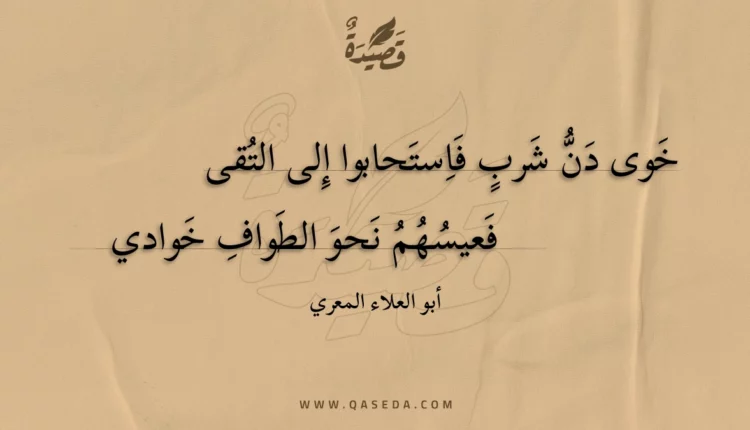 قَصِيدَةٌ
خَوى دَنُّ شَربٍ فَاِستَحابوا إِلى التُقى
فَعيسُهُمُ نَحوَ الطَوافِ خَوادي
أبو العلاء المعري
WWW.QASEDA.COM